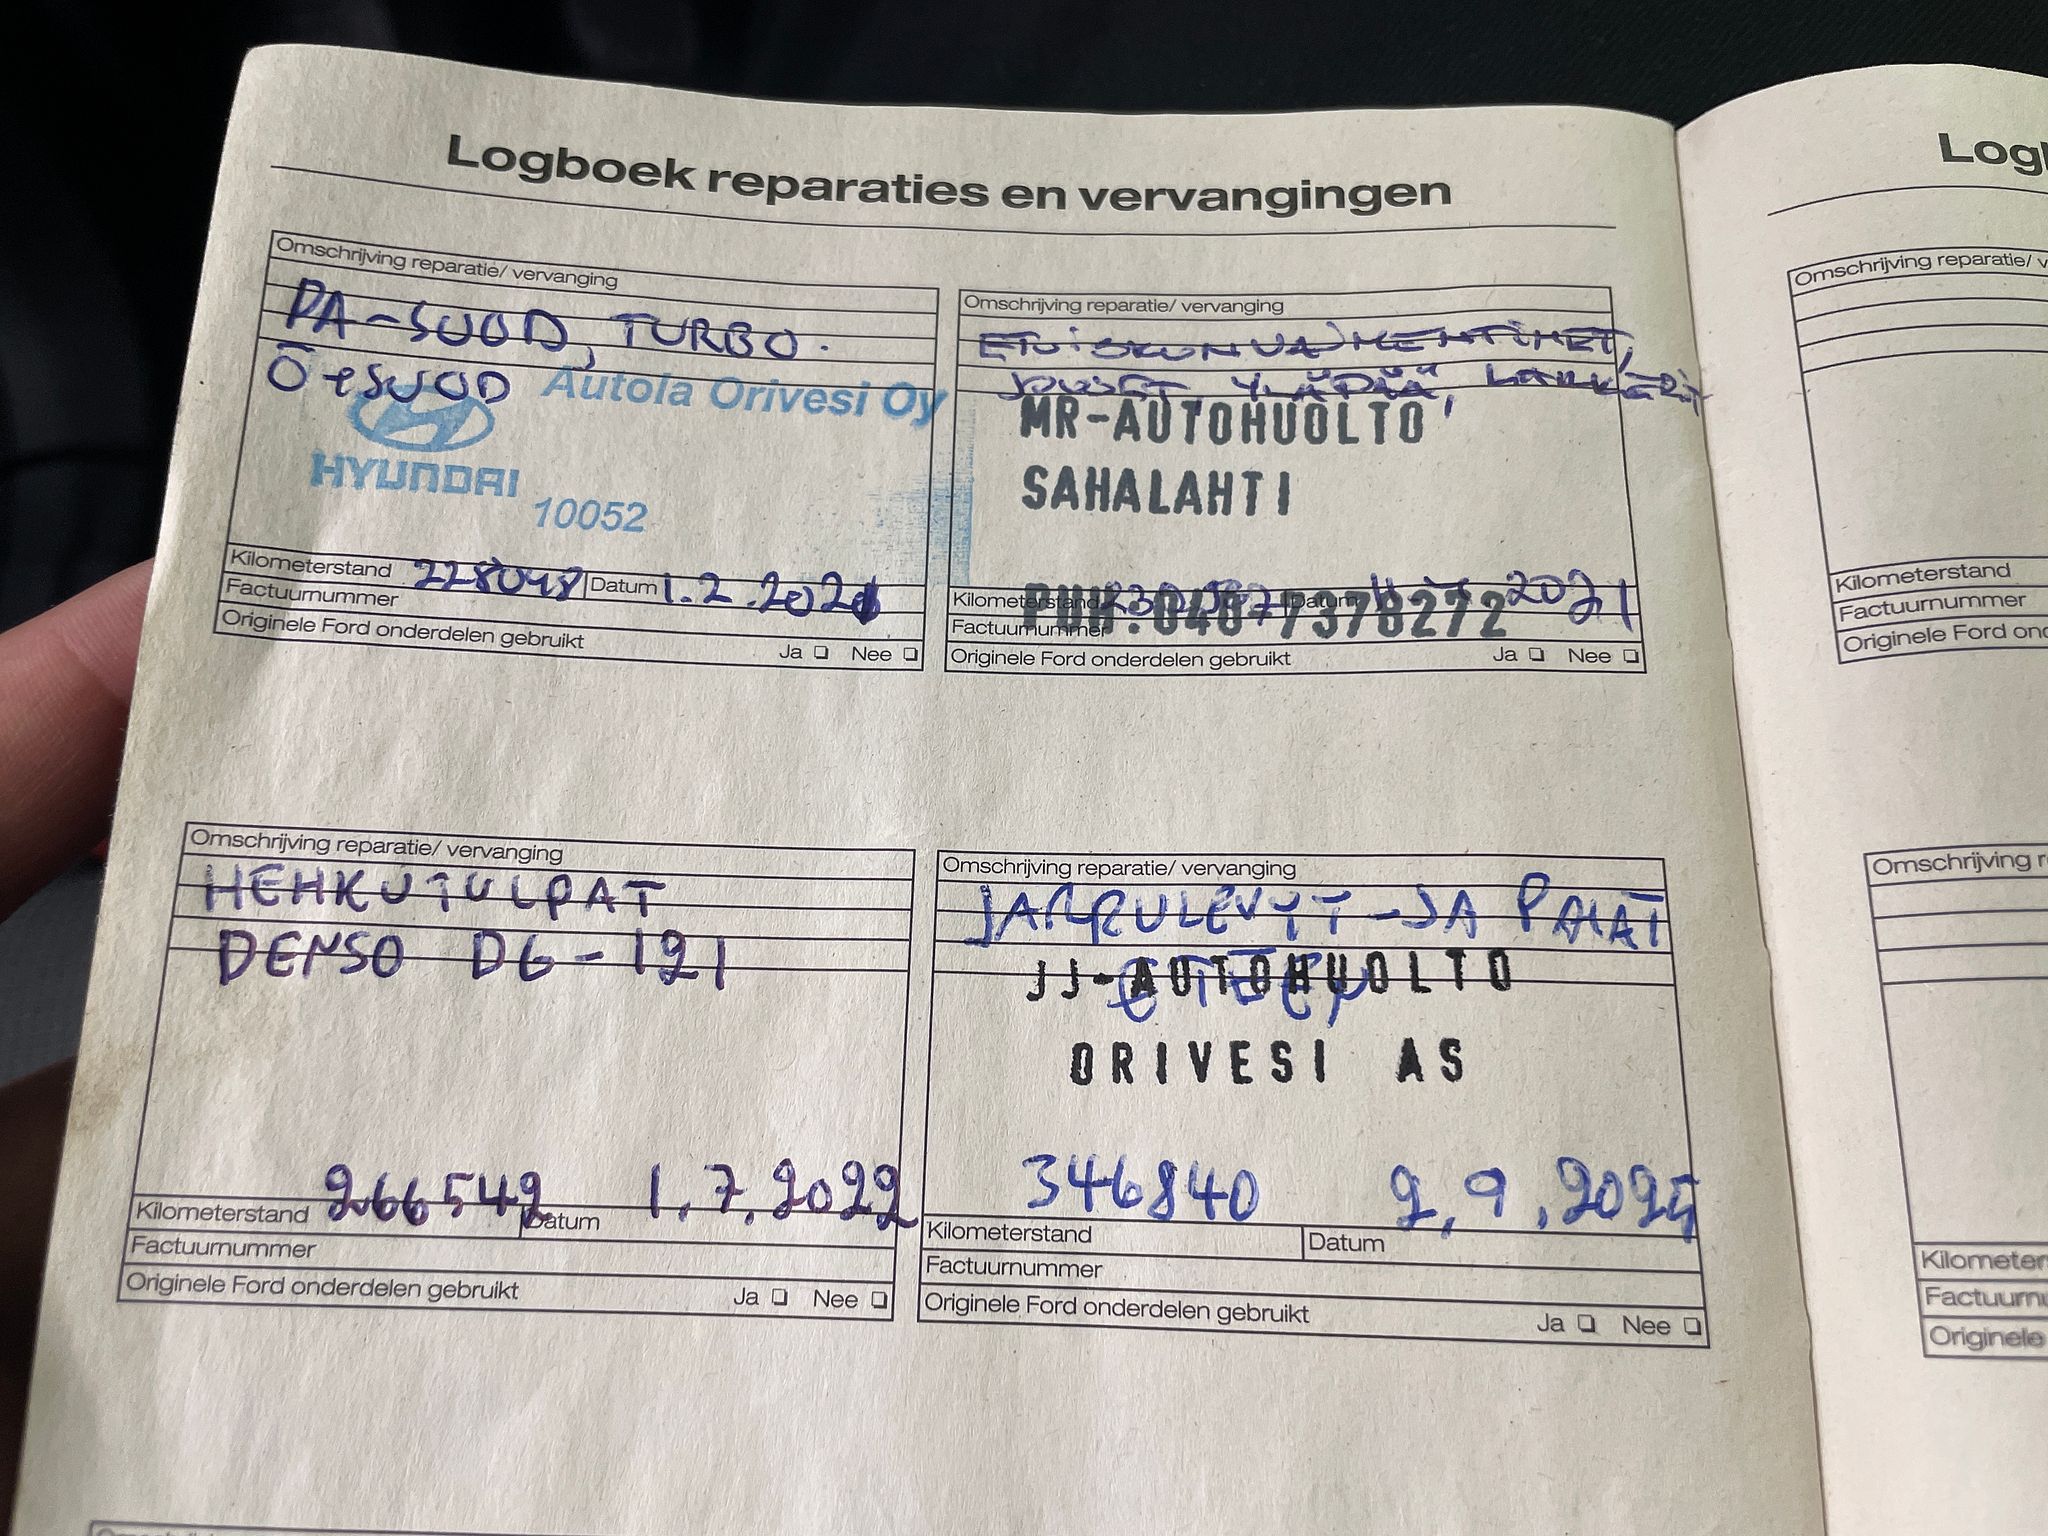 Logboek reparaties en vervangingen
Omschrijving reparatie/ vervanging
PA-SUOD, TURBO.
Ö-SUOD
Autola Orivesi Oy
HYUNDAI
10052
Kilometerstand 228048 Datum 1.2.2021
Factuurnummer
Originele Ford onderdelen gebruikt Ja Nee
Omschrijving reparatie/ vervanging
ETUISKUNVAIMENTIMET,
JOUSET, YLÄPÄÄ,
MR-AUTOHUOLTO
SAHALAHTI
PUH.040-7378272
Kilometerstand Datum 2021
Factuurnummer
Originele Ford onderdelen gebruikt Ja Nee
Omschrijving reparatie/ vervanging
HEHKUTULPAT
DENSO DG-121
Kilometerstand 266542 Datum 1.7.2022
Factuurnummer
Originele Ford onderdelen gebruikt Ja Nee
Omschrijving reparatie/ vervanging
JARRULEVYT-JA PALAT
JJ-AUTOHUOLTO
ORIVESI AS
346840 2.9.2025
Kilometerstand Datum
Factuurnummer
Originele Ford onderdelen gebruikt Ja Nee
Omschrijving reparatie/
Kilometerstand
Factuurnummer
Originele Ford
Omschrijving
Originele